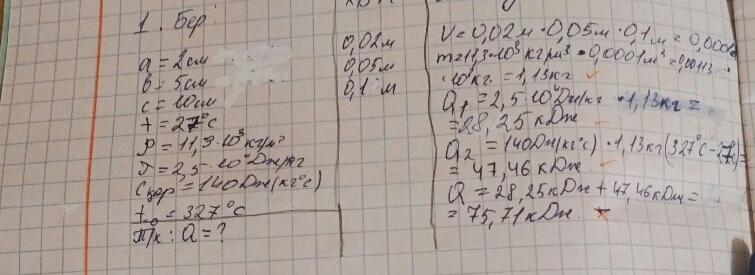 1. Бер:
a = 2см
b = 5см
c = 10см
t = 27°C
ρ = 11,3·10³ кг/м³
= 2,5·10⁴ Дж/кг
Cқор = 140Дж/(кг°C)
t₀ = 327°C
Т/к: Q = ?
0,02м
0,05м
0,1 м
V = 0,02м·0,05м·0,1м = 0,0001
m = 11,3·10³ кг/м³·0,0001м³ = 0,00113·
·10³кг. = 1,13кг
Q₁ = 2,5·10⁴Дж/кг·1,13кг =
= 28,25кДж
Q₂ = 140Дж/(кг°C)·1,13кг(327°C-27°C)=
= 47,46кДж
Q = 28,25кДж + 47,46кДж =
= 75,71кДж